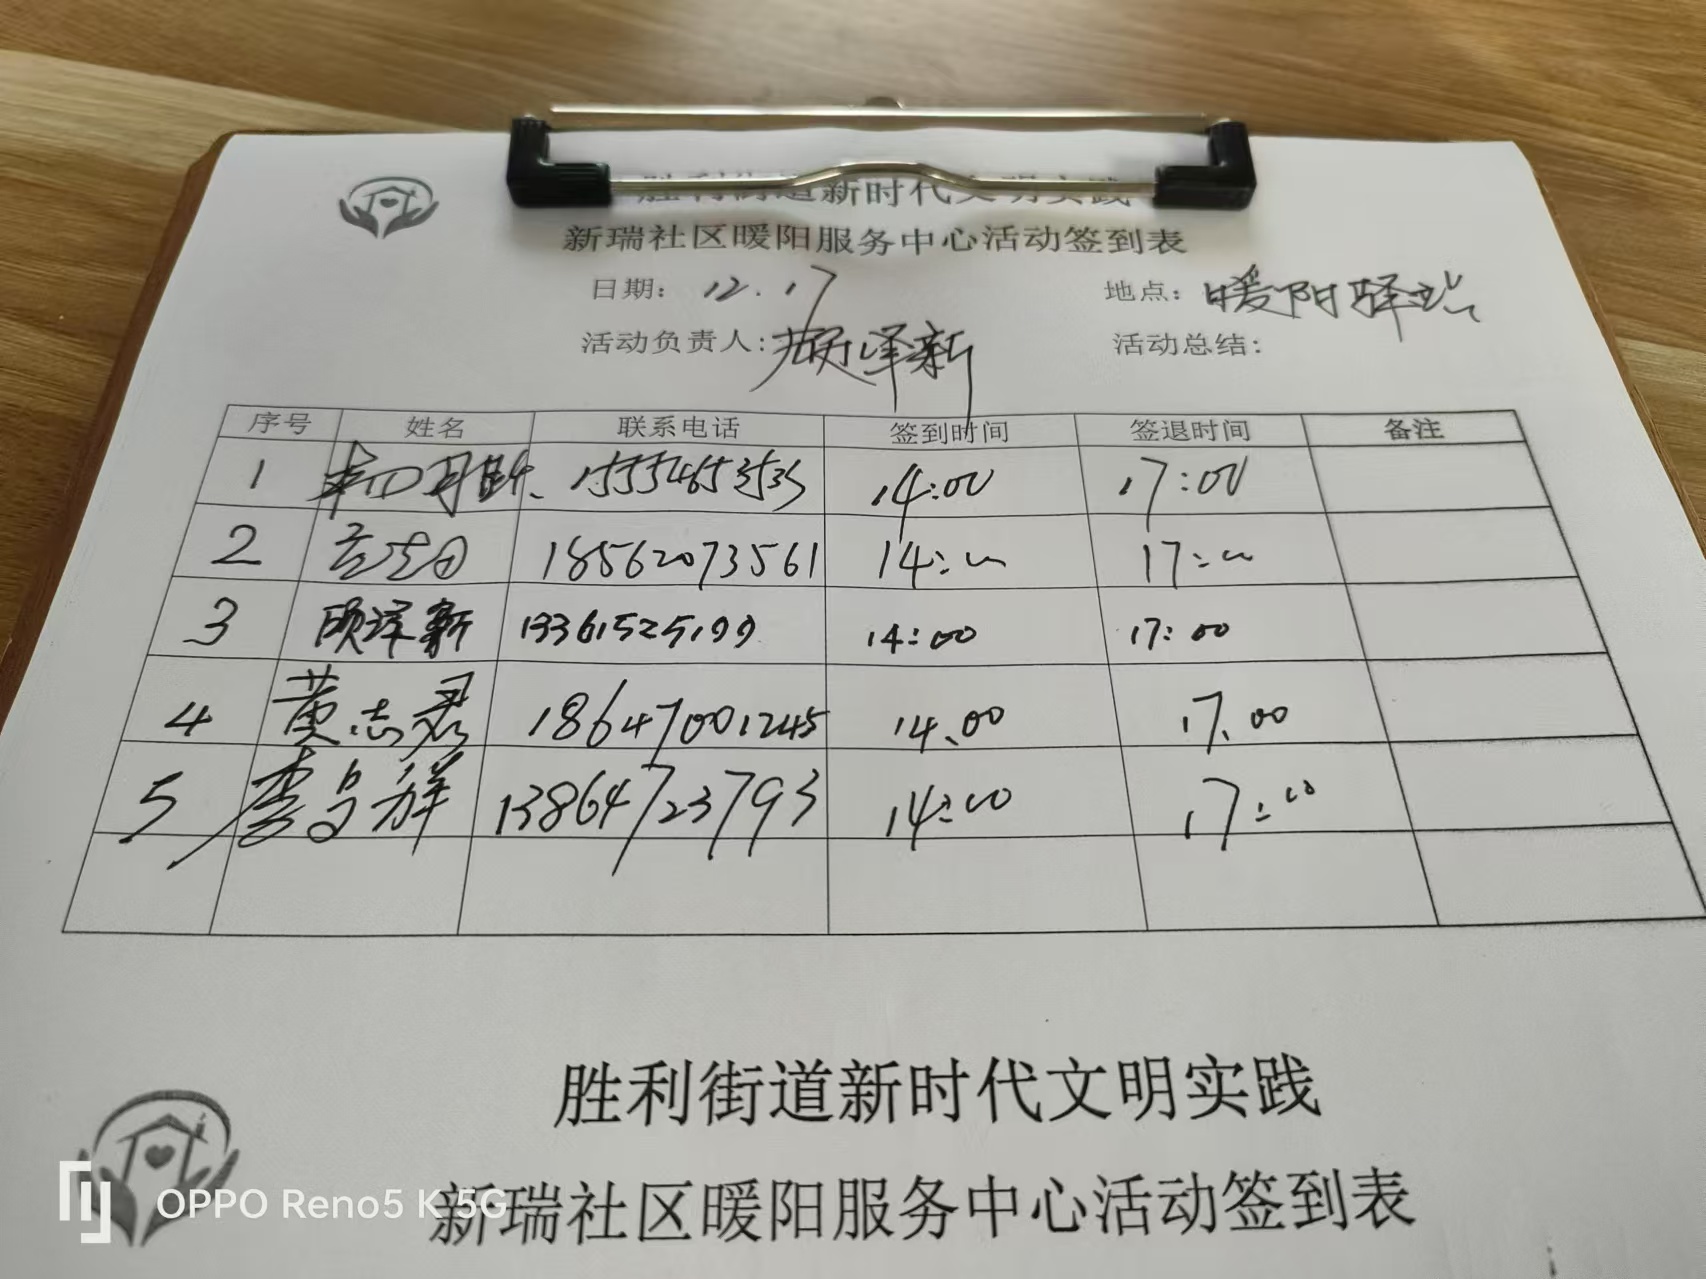 胜利街道新时代文明实践
新瑞社区暖阳服务中心活动签到表
日期: 12.17 地点: 暖阳驿站
活动负责人: 顾泽新 活动总结:
序号 姓名 联系电话 签到时间 签退时间 备注
1 14:00 17:00
2 18562073561 14:00 17:00
3 顾泽新 13361525199 14:00 17:00
4 黄志君 18647001245 14.00 17.00
5 李乌群 13864723793 14:00 17:00
胜利街道新时代文明实践
新瑞社区暖阳服务中心活动签到表
OPPO Reno5 K 5G